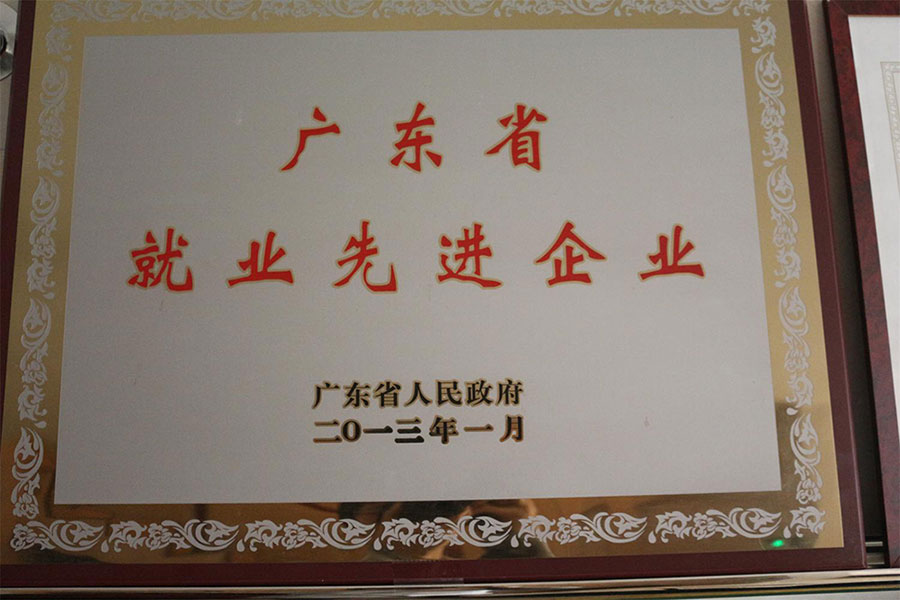 广东省
就业先进企业
广东省人民政府
二〇一三年一月